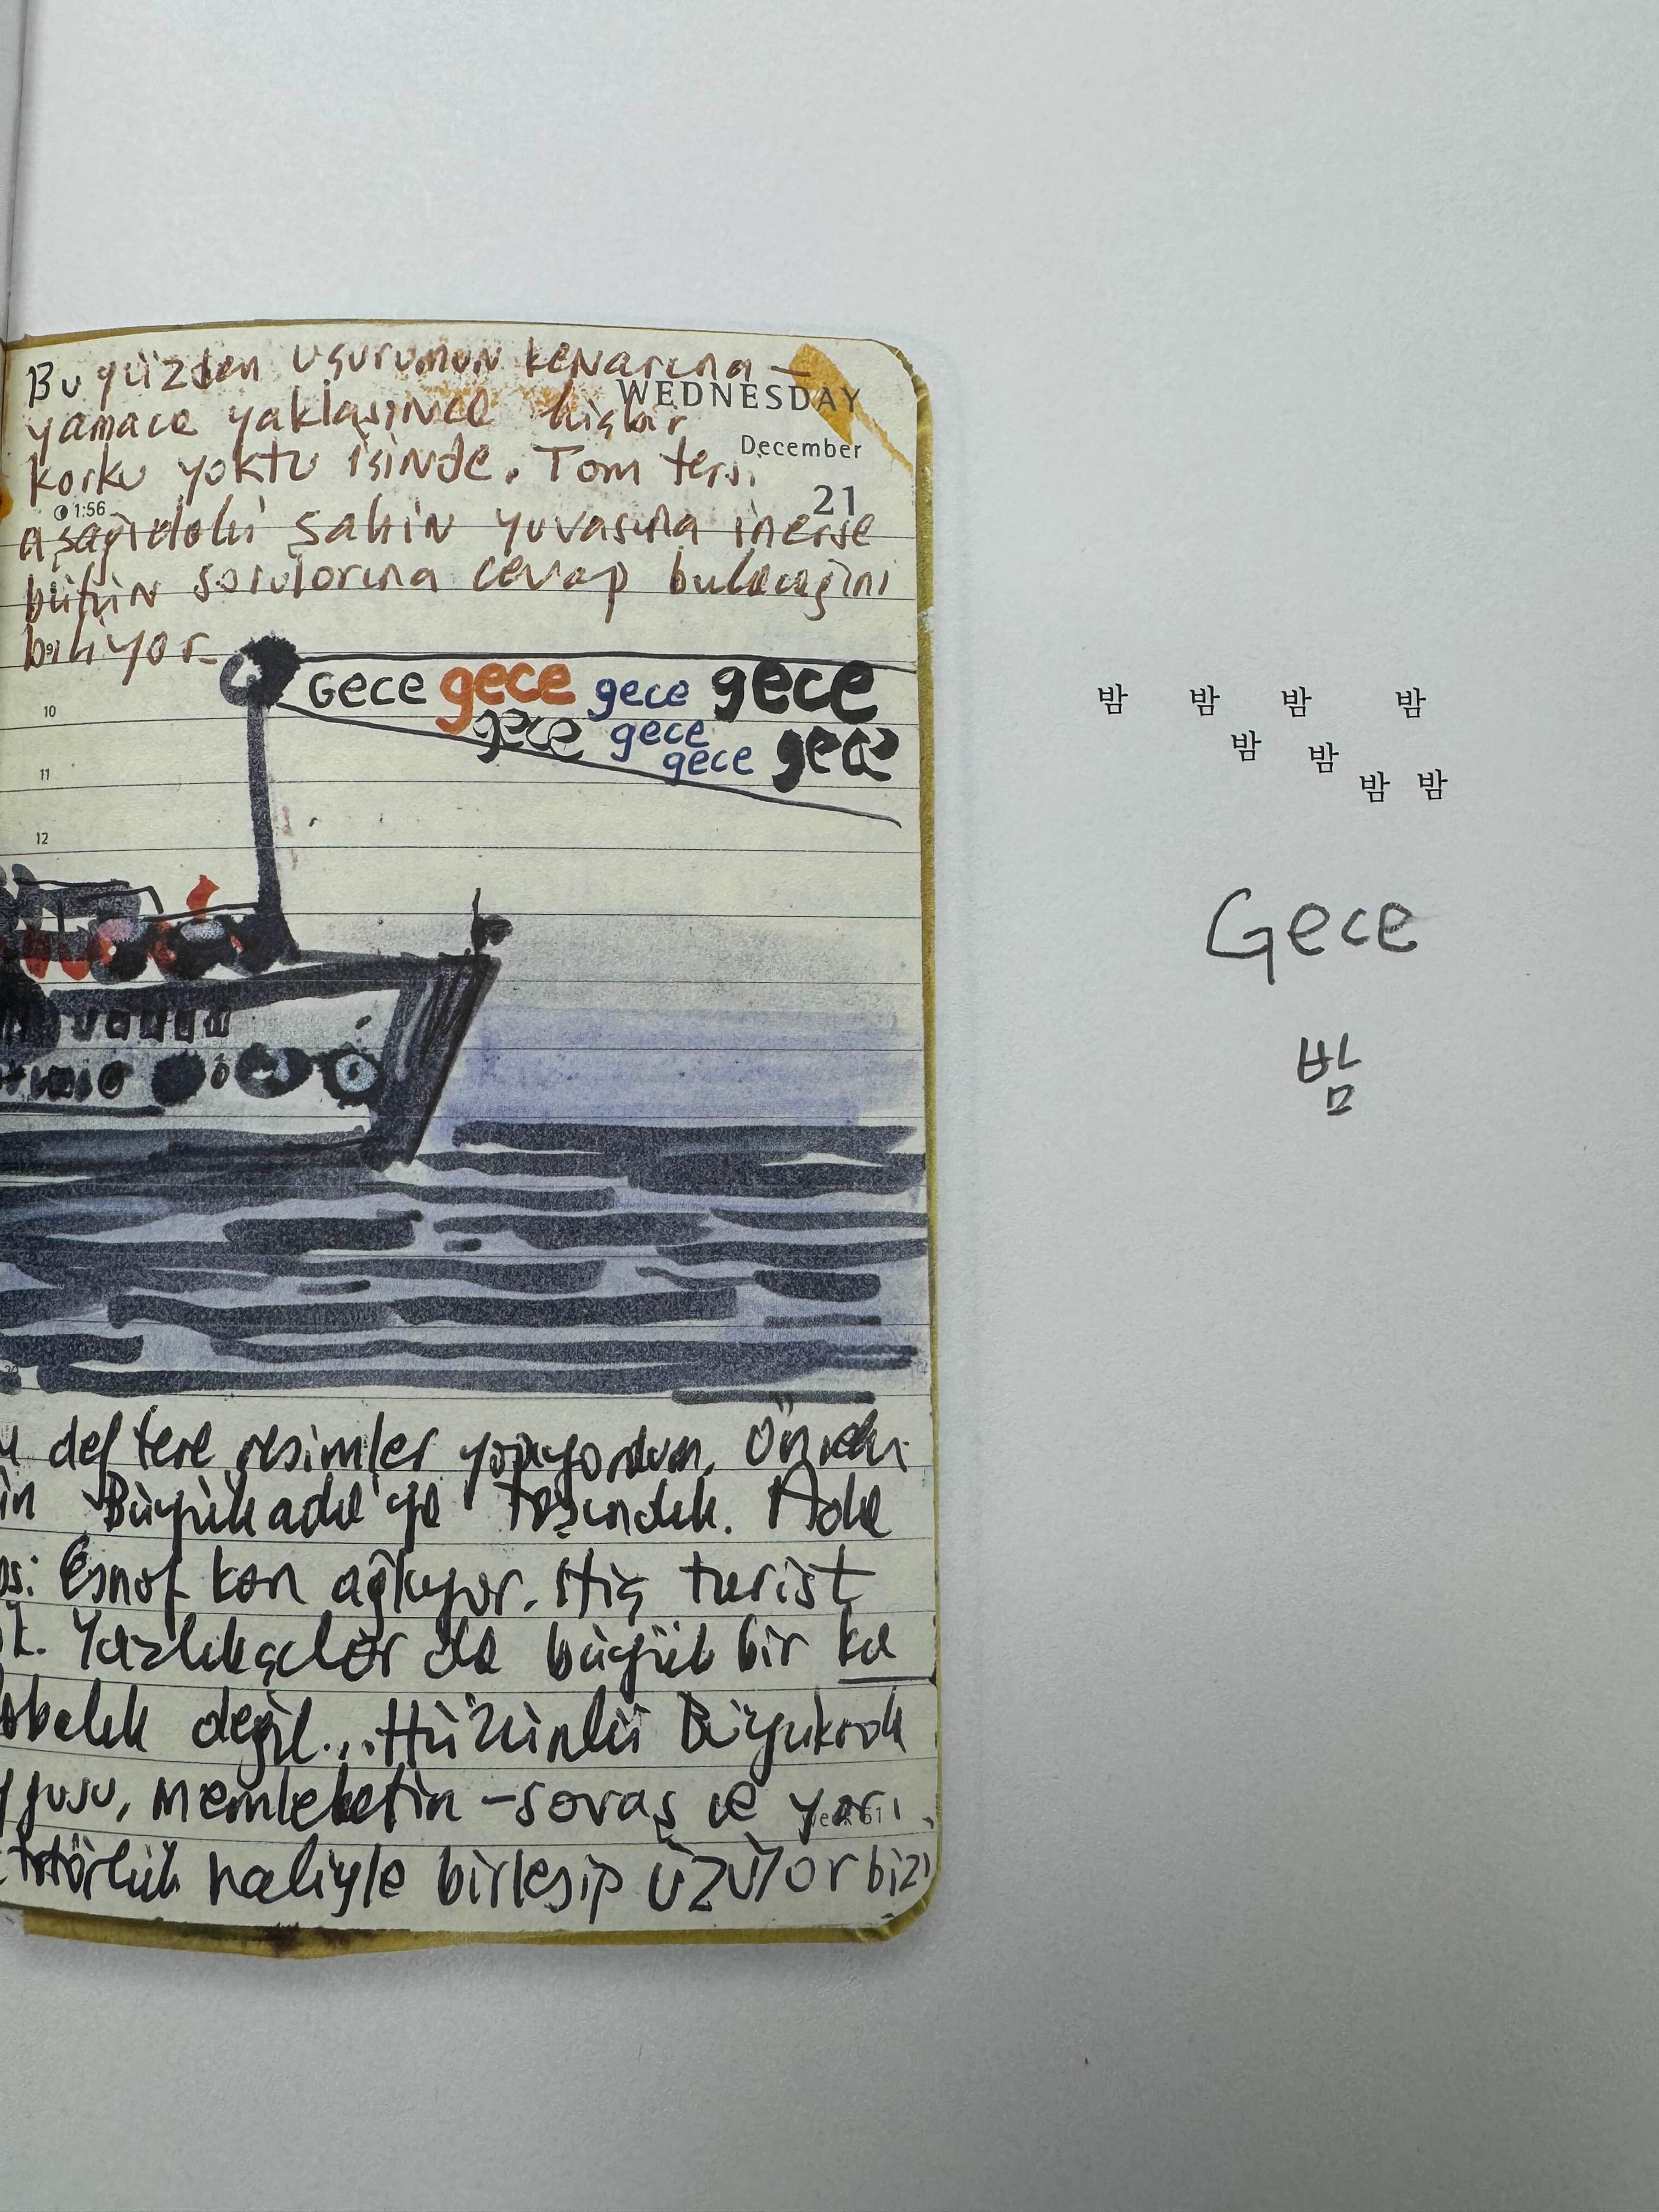 Bu yüzden uçurumun kenarına -
WEDNESDAY
yamaca yaklaşınca hiçbir
December
korku yoktu içinde. Tom tersi
21
1:56
aşağıdaki şahin yuvasına inerse
bütün sorularına cevap bulacağını
biliyor
Gece gece gece gece
gece gece
gece gece
10
11
12
밤 밤 밤 밤
밤 밤
밤 밤
Gece
밤
deftere resimler yapıyordum. Önceki
in Büyükada'ya taşındık. Ada
Esnaf kan ağlıyor. Hiç turist
Yazlıkçılar da büyük bir ka
balık değil... Hüzünlü Büyükada
memleketin - savaş ve yarı
haliyle birleşip üzüyor bizi